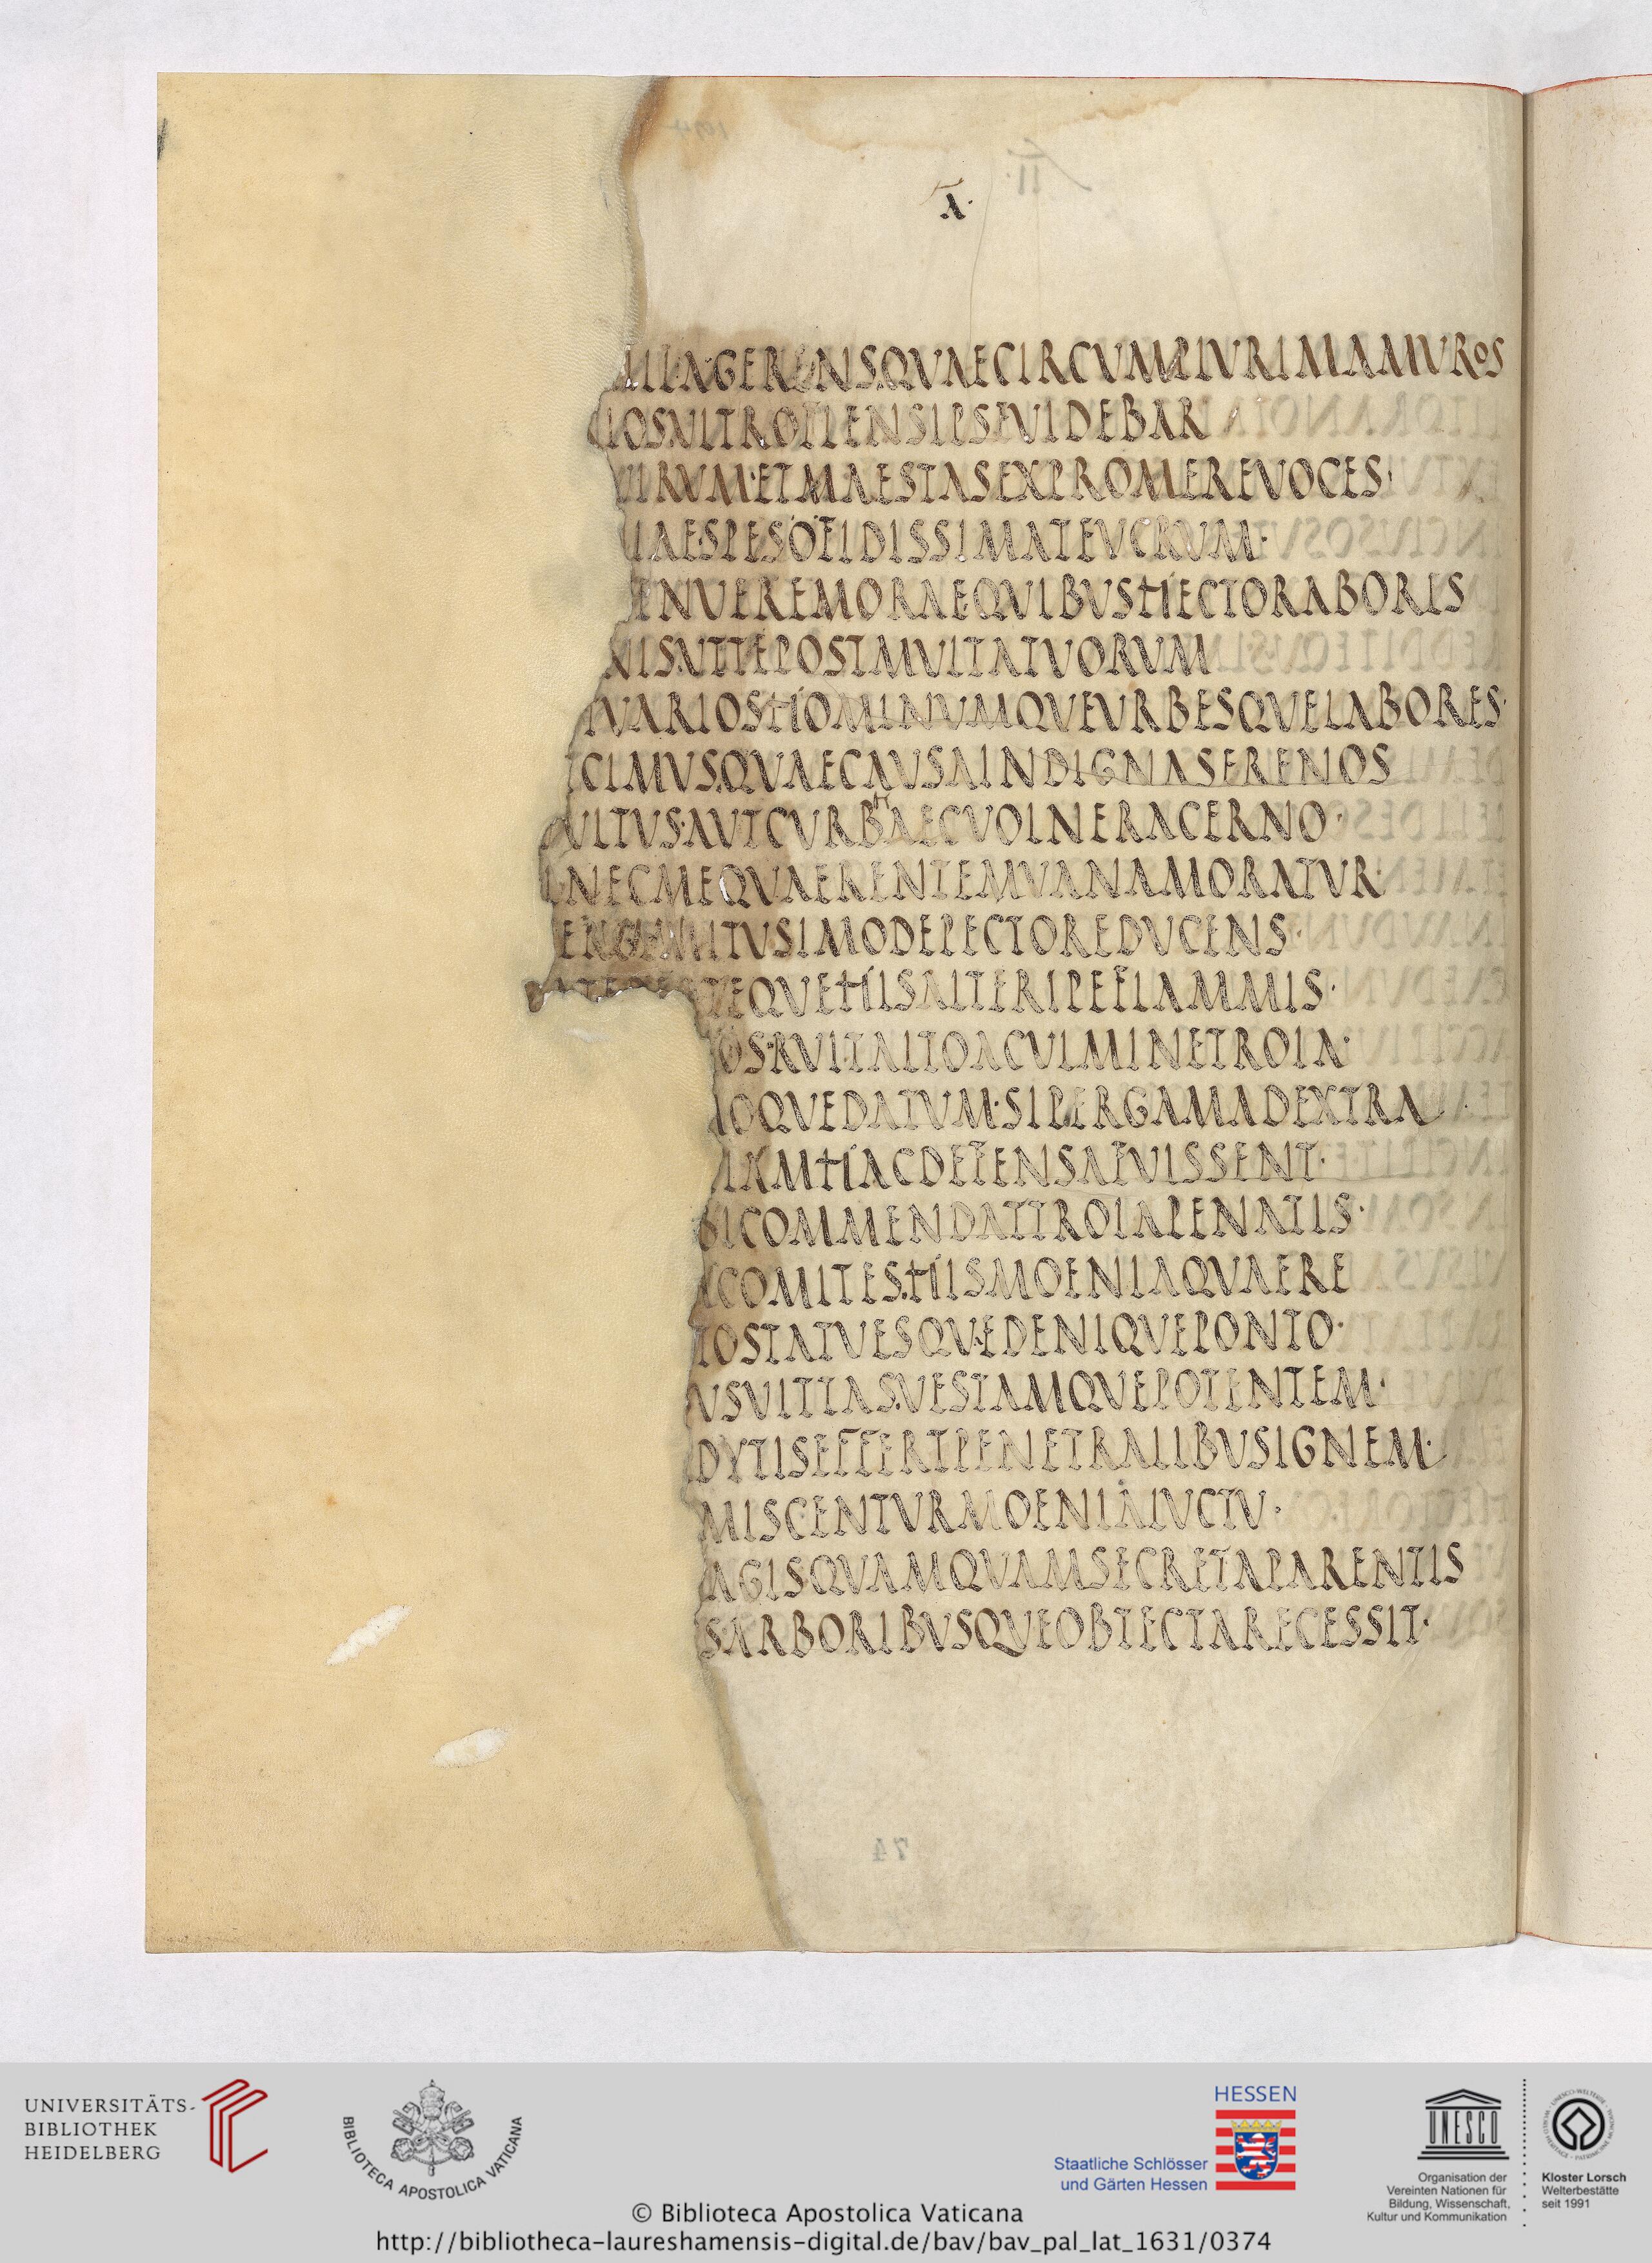 LLAGERENSQVAECIRCVMPLVRIMAMVROS
IOS·VLTROFLENSIPSEVIDEBAR
VIRVM·ETMAESTASEXPROMEREVOCES·
IAE·SPESOFIDISSIMATEVCRVM·
ENVEREMORAEQVIBVSHECTORABORIS
NIS·VTTEPOSTMVLTATVORVM
TVARIOSHOMINVMQVEVRBESQVELABORES·
ICIMVS·QVAECAVSAINDIGNASERENOS
VLTVS·AVTCVRBAECVOLNERACERNO·
H
NECMEQVAERENTEMVANAMORATVR·
ERGEMITVSIMODEPECTOREDVCENS·
TEQVEHISAITERIPEFLAMMIS·
OS·RVITALTOACVLMINETROIA·
IOQVEDATVM·SIPERGAMADEXTRA
IAMHACDEFENSAFVISSENT·
BICOMMENDATTROIAPENATIS·
COMITES·HISMOENIAQVAERE
TOSTATVESQV·EDENIQVEPONTO·
VSVITTAS·VESTAMQVEPOTENTEM·
DYTISEFFERTPENETRALIBVSIGNEM·
MISCENTVRMOENIALVCTV·
AGISQVAMQVAMSECRETAPARENTIS
SARBORIBVSQVEOBTECTARECESSIT·
UNIVERSITÄTS-
BIBLIOTHEK
HEIDELBERG
BIBLIOTECA APOSTOLICA VATICANA
HESSEN
Staatliche Schlösser
und Gärten Hessen
UNESCO
Organisation der
Vereinten Nationen für
Bildung, Wissenschaft,
Kultur und Kommunikation
Kloster Lorsch
Welterbestätte
seit 1991
© Biblioteca Apostolica Vaticana
http://bibliotheca-laureshamensis-digital.de/bav/bav_pal_lat_1631/0374